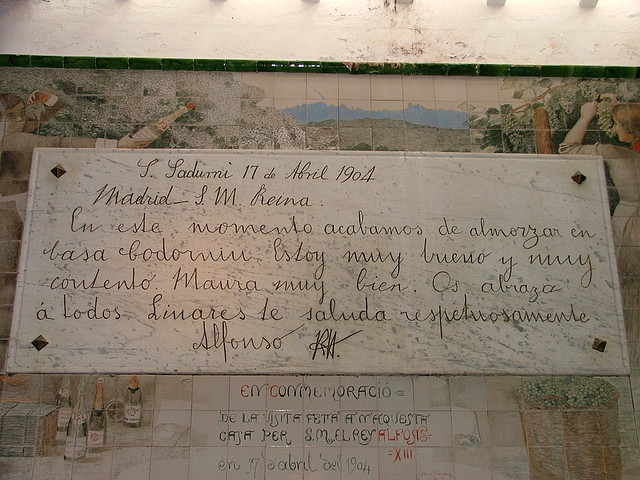 S. Sadurni 17 de Abril 1904
Madrid - S. M. Reina.
En este momento acabamos de almorzar en
casa Codorniu. Estoy muy bueno y muy
contento. Maura muy bien. Os abraza
á todos. Linares te saluda respetuosamente
Alfonso
EN CONMEMORACIÓ
DE LA VISITA FETA A N'AQUESTA
CASA PER S.M. EL REY ALFONS
XIII
en 17 d'abril del 1904